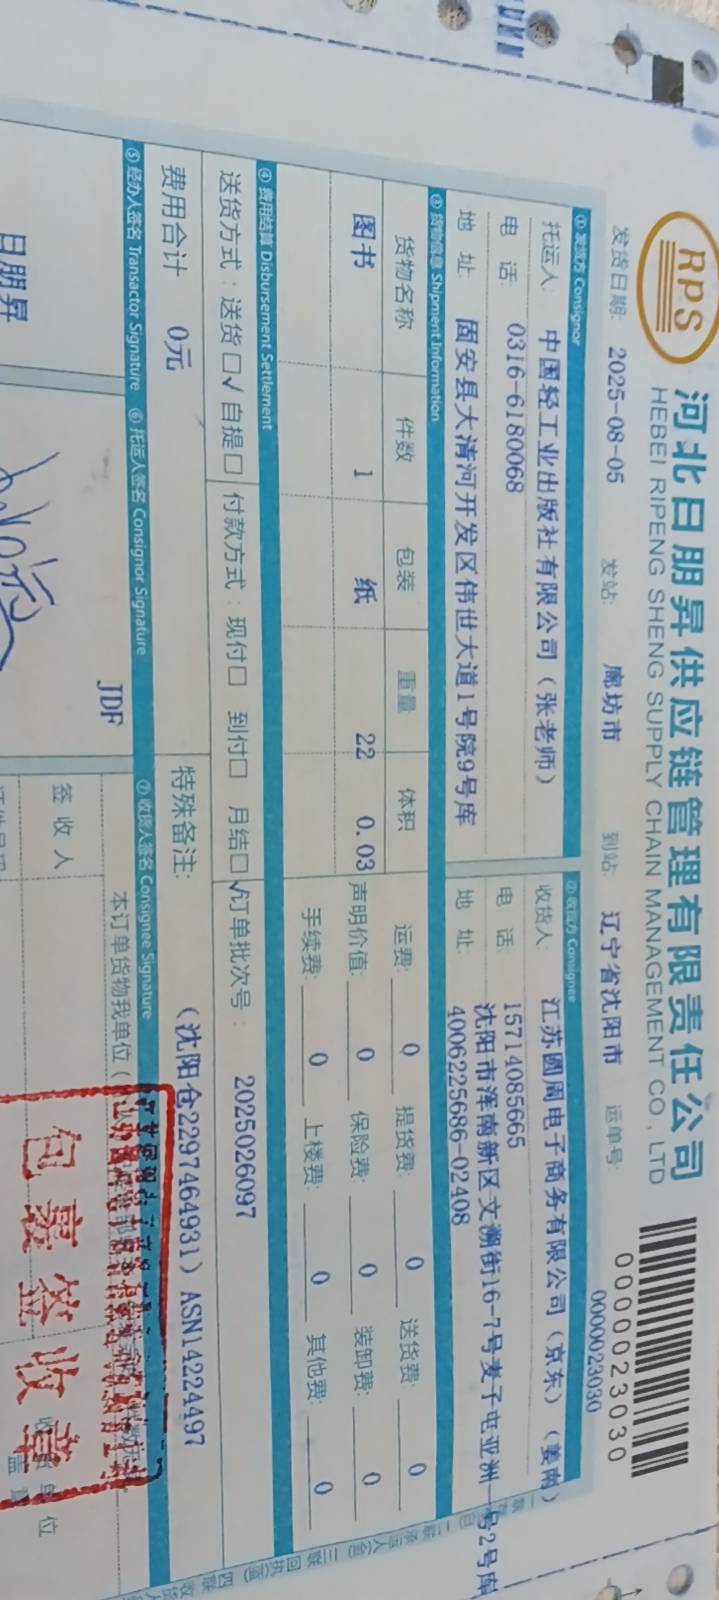 RPS
河北日朋昇供应链管理有限责任公司
HEBEI RIPENG SHENG SUPPLY CHAIN MANAGEMENT CO., LTD
0000023030
发货日期: 2025-08-05 发站: 廊坊市 到站: 辽宁省沈阳市 运单号: 0000023030
① 发货方 Consignor ② 收货方 Consignee
托运人: 中国轻工业出版社有限公司（张老师） 收货人: 江苏圆周电子商务有限公司（京东）（姜南）
电 话: 0316-6180068 电 话: 15714085665
地 址: 固安县大清河开发区伟世大道1号院9号库 地 址: 沈阳市浑南新区文溯街16-7号麦子屯亚洲一号2号库
4006225686-02408
③ 货物信息 Shipment Information
货物名称 件数 包装 重量 体积 运费: 0 提货费: 0 送货费: 0
图书 1 纸 22 0.03 声明价值: 0 保险费: 0 装卸费: 0
手续费: 0 上楼费: 0 其他费: 0
④ 费用结算 Disbursement Settlement
送货方式: 送货□√ 自提□ 付款方式: 现付□ 到付□ 月结□√ 订单批次号: 2025026097
费用合计 0元 特殊备注: （沈阳仓2297464931）ASN14224497
⑤ 经办人签名 Transactor Signature ⑥ 托运人签名 Consignor Signature ⑦ 收货人签名 Consignee Signature
JDF
本订单货物我单位（
签收人
日朋昇
包裹签收章
单位